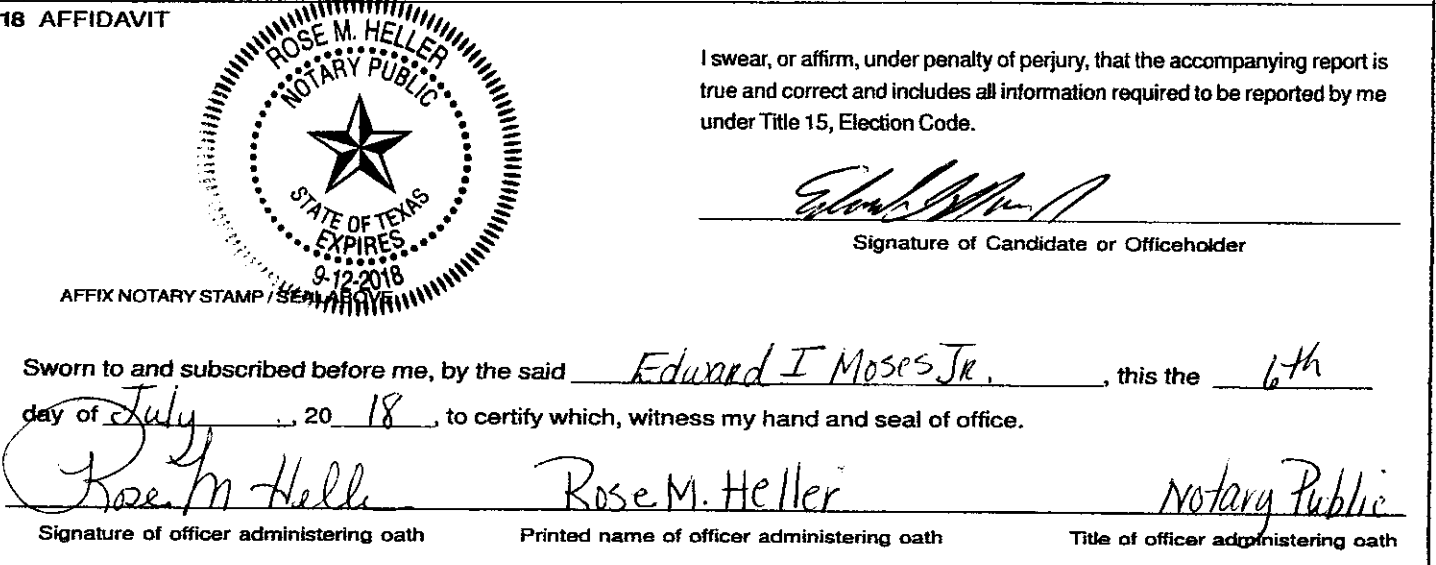 18 AFFIDAVIT
ROSE M. HELLER
NOTARY PUBLIC
STATE OF TEXAS
EXPIRES
9-12-2018
AFFIX NOTARY STAMP / SEAL ABOVE
I swear, or affirm, under penalty of perjury, that the accompanying report is
true and correct and includes all information required to be reported by me
under Title 15, Election Code.
Signature of Candidate or Officeholder
Sworn to and subscribed before me, by the said Edward I Moses JR. , this the 6th
day of July , 20 18 , to certify which, witness my hand and seal of office.
Rose M Heller Rose M. Heller Notary Public
Signature of officer administering oath Printed name of officer administering oath Title of officer administering oath